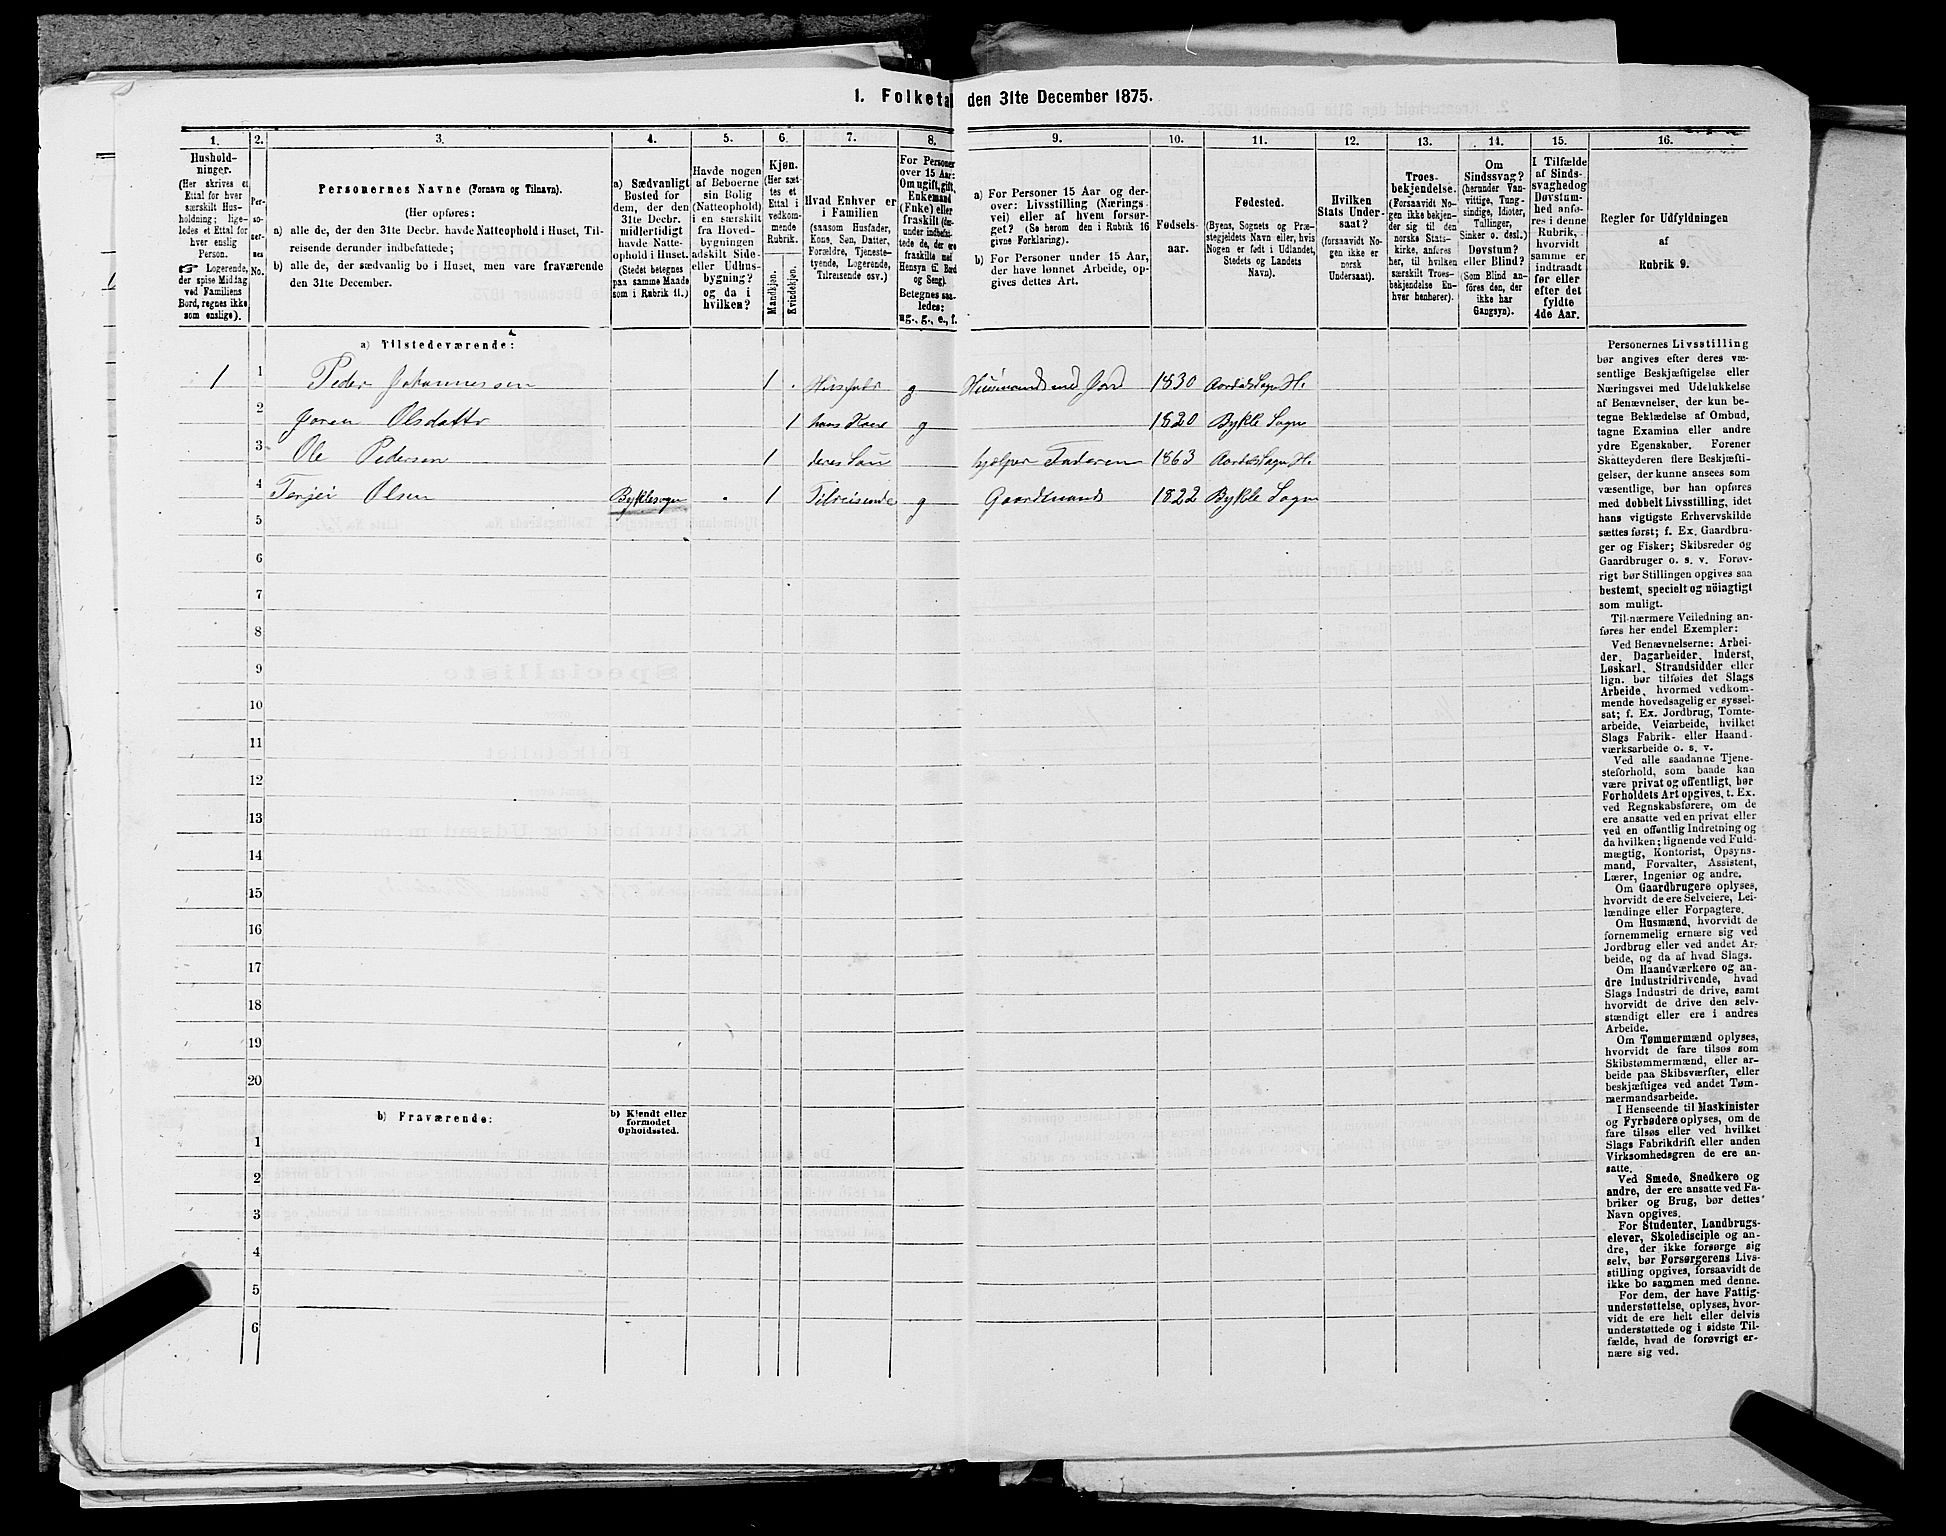 1. Folketa den 31te December 1875.
1. 2. 3. 4. 5. 6. 7. 8. 9. 10. 11. 12. 13. 14. 15. 16.
Hushold-
ninger.
(Her skrives et
Ettal for hver
særskilt Hus-
holdning; lige-
ledes et Ettal for
hver enslig
Person.
☞ Logerende,
der spise Middag
ved Familiens
Bord, regnes ikke
som enslige).
Per-
so-
ner-
nes
No.
Personernes Navne (Fornavn og Tilnavn).
(Her opføres:
a) alle de, der den 31te Decbr. havde Natteophold i Huset, Til-
reisende derunder indbefattede;
b) alle de, der sædvanlig bo i Huset, men vare fraværende
den 31te December.
a) Sædvanligt
Bosted for
dem, der den
31te Decbr.
midlertidigt
havde Natte-
ophold i Huset.
(Stedet betegnes
paa samme Maade
som i Rubrik 11.)
Havde nogen
af Beboerne
sin Bolig
(Natteophold)
i en særskilt
fra Hoved-
bygningen
adskilt Side-
eller Udhus-
bygning?
og da i
hvilken?
Kjøn.
(Her sæt-
tes et
Ettal i
vedkom-
mende
Rubrik.
Mandkjøn.
Kvindekjøn.
Hvad Enhver er
i Familien
(saasom Husfader,
Kone, Søn, Datter,
Forældre, Tjeneste-
tyende, Logerende,
Tilreisende osv.)
For Personer
over 15 Aar:
Om ugift, gift,
Enkemand
(Enke) eller
fraskilt (der-
under indbefat-
tede de, der ere
fraskilte med
Hensyn til Bord
og Seng).
Betegnes saa-
ledes:
ug., g., e., f.
a) For Personer 15 Aar og der-
over: Livsstilling (Nærings
vei) eller af hvem forsør-
get? (Se herom den i Rubrik 16
givne Forklaring).
b) For Personer under 15 Aar,
der have lønnet Arbeide, op-
gives dettes Art.
Fødsels-
aar.
Fødested.
(Byens, Sognets og Præ-
stegjeldets Navn eller, hvis
Nogen er født i Udlandet,
Stedets og Landets
Navn).
Hvilken
Stats Under-
saat?
(forsaavidt No-
gen ikke er
norsk
Undersaat).
Troes-
bekjendelse.
(Forsaavidt No-
gen ikke bekjen-
der sig til den
norske Stats-
kirke, anføres
her, til hvilken
særskilt Troes-
bekjendelse En-
hver henhører).
Om
Sindssvag?
(herunder Van-
vittige, Tung-
sindige, Idioter,
Tullinger,
Sinker o. desl.)
Døvstum?
eller Blind?
(Som Blind an-
føres den, der
ikke har
Gangsyn).
I Tilfælde
af Sinds-
svaghed og
Døvstum-
hed anfø-
res i denne
Rubrik,
hvorvidt
samme er
indtraadt
før eller
efter det
fyldte
4de Aar.
Regler for Udfyldningen
af
Rubrik 9.
a) Tilstedeværende:
1 1 Peder Johannessen 1 Husfader g Huusmand med Jord 1830 Aardals Sogn H.
2 Joren Olsdatter 1 hans Kone g 1820 Bykle Sogn
3 Ole Pedersen 1 deres Søn hjelper Faderen 1863 Aardals Sogn H.
4 Terjei Olsen Byklesogn 1 Tilreisende g Gaardmand 1822 Bykle Sogn
5
6
7
8
9
10
11
12
13
14
15
16
17
18
19
20
b) Fraværende:
b) Kjendt eller
formodet
Opholdssted.
1
2
3
4
5
6
Personernes Livsstilling
bør angives efter deres væ-
sentlige Beskjæftigelse eller
Næringsvei med Udelukkelse
af Benævnelser, der kun be-
tegne Beklædelse af Ombud,
tagne Examina eller andre
ydre Egenskaber. Forener
Skatteyderen flere Beskjæfti-
gelser, der kunne ansees som
væsentlige, bør han opføres
med dobbelt Livsstilling, idet
hans vigtigste Erhvervskilde
sættes først; f. Ex. Gaardbru-
ger og Fisker; Skibsreder og
Gaardbruger o. s. v. Forøv-
rigt bør Stillingen opgives saa
bestemt, specielt og nöiagtigt
som muligt.
Til nærmere Veiledning an-
føres her endel Exempler:
Ved Benævnelserne: Arbei-
der, Dagarbeider, Inderst,
Løskarl, Strandsidder eller
lign. bør tilføies det Slags
Arbeide, hvormed vedkom-
mende hovedsagelig er syssel-
sat; f. Ex. Jordbrug, Tomte-
arbeide, Veiarbeide, hvilket
Slags Fabrik- eller Haand-
værksarbeide o. s. v.
Ved alle saadanne Tjene-
steforhold, som baade kan
være privat og offentligt, bør
Forholdets Art opgives, t. Ex.
ved Regnskabsførere, om de
ere ansatte ved en privat eller
ved en offentlig Indretning og
da hvilken; lignende ved Fuld-
mægtig, Kontorist, Opsyns-
mand, Forvalter, Assistent,
Lærer, Ingeniør og andre.
Om Gaardbrugere oplyses,
hvorvidt de ere Selveiere, Lei-
lændinge eller Forpagtere.
Om Husmænd, hvorvidt de
fornemmelig ernære sig ved
Jordbrug eller ved andet Ar-
beide, og da af hvad Slags.
Om Haandværkere og an-
dre Industridrivende, hvad
Slags Industri de drive, samt
hvorvidt de drive den selv-
stændigt eller ere i andres
Arbeide.
Om Tømmermænd oplyses,
hvorvidt de fare tilsøs som
Skibstømmermænd, eller ar-
beide paa Skibsværfter, eller
beskjæftiges ved andet Tøm-
mermandsarbeide.
I Henseende til Maskinister
og Fyrbødere oplyses, om de
fare tilsøs eller ved hvilket
Slags Fabrikdrift eller anden
Virksomhedsgren de ere an-
satte.
Ved Smede, Snedkere og
andre, der ere ansatte ved Fa-
briker og Brug, bør dettes
Navn opgives.
For Studenter, Landbrugs-
elever, Skoledisciple og an-
dre, der ikke forsørge sig
selv, bør Forsørgerens Livs-
stilling opgives, forsaavidt de
ikke bo sammen med denne.
For dem, der have Fattig-
understøttelse, oplyses, hvor-
vidt de ere helt eller delvis
understøttede og i sidste Til-
fælde, hvad de forøvrigt er-
nære sig ved.